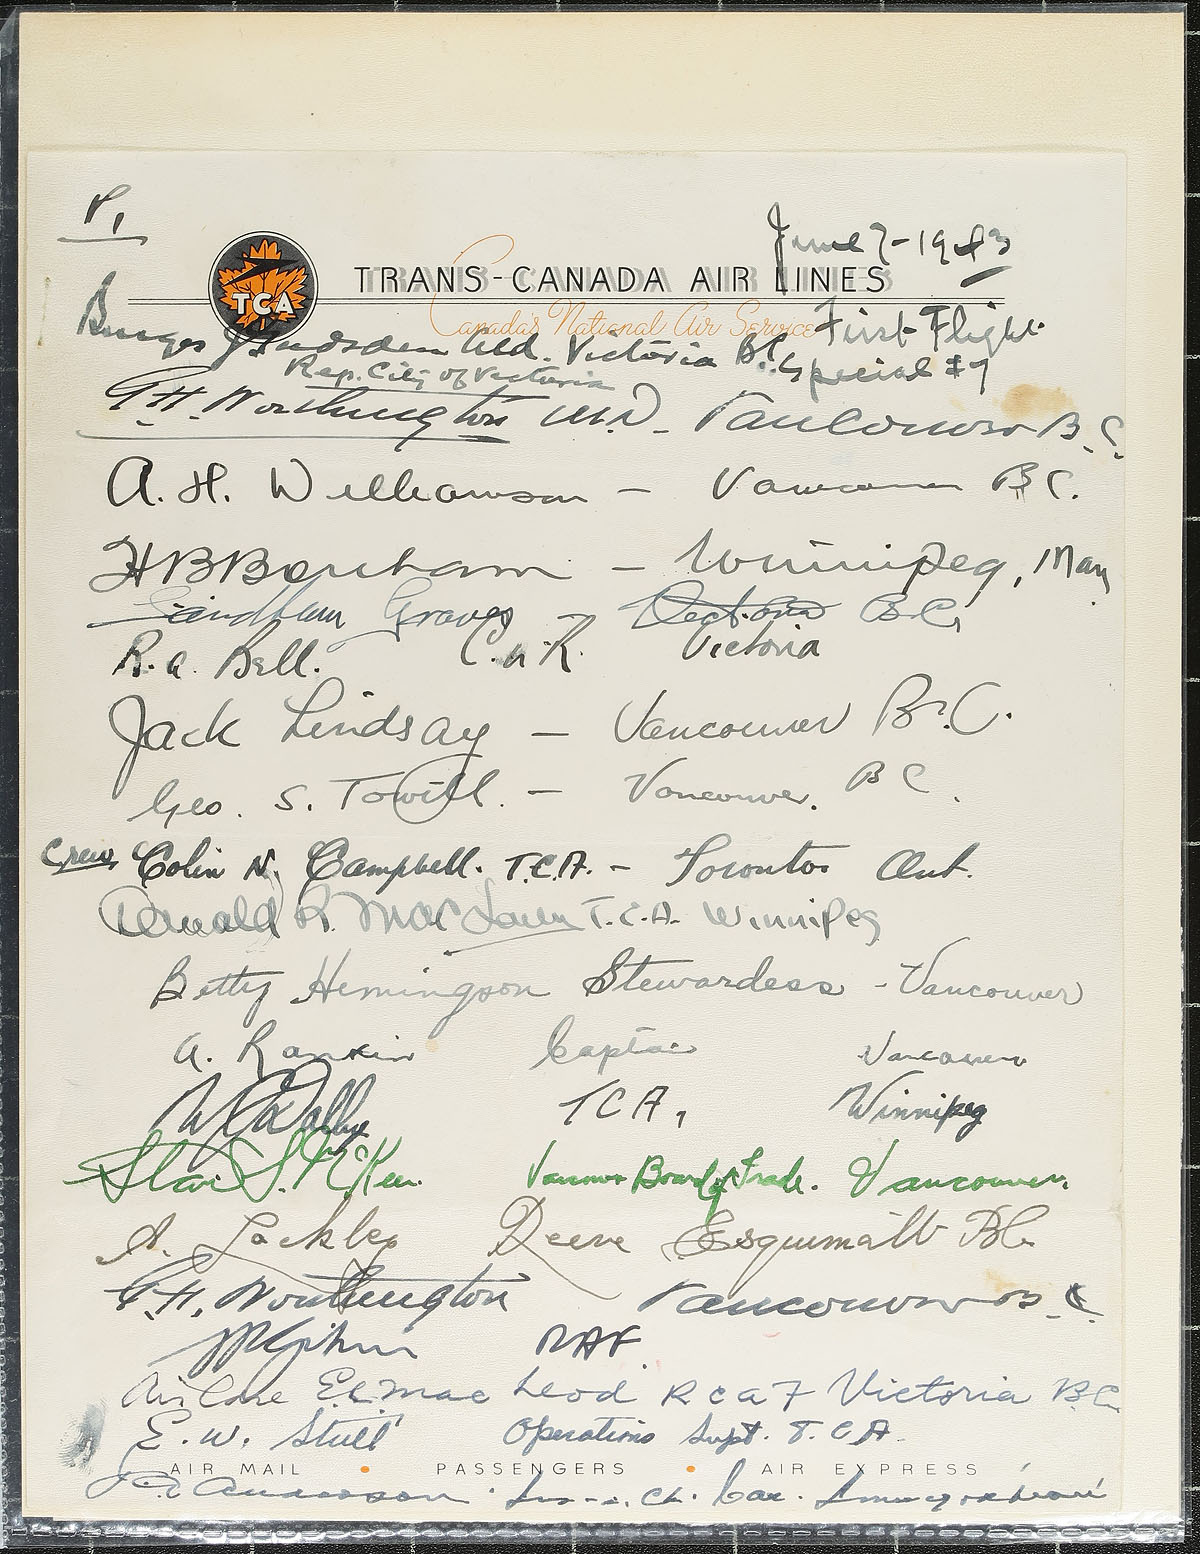 P 1
June 7-1943
TCA
TRANS-CANADA AIR LINES
Canada's National Air Service
First Flight
Special #7
Burges J Gadsden Ald. Victoria B.C.
Rep. City of Victoria
G.H. Worthington M.D. - Vancouver B.C.
A. H. Williamson - Vancouver BC.
H B Bonham - Winnipeg, Man
Sandham Graves - Victoria B.C.
R. A. Bell. Victoria
Jack Lindsay - Vancouver B.C.
Geo. S. Towill. - Vancouver. BC.
Crew Colin N. Campbell. T.C.A. - Toronto Ont.
Donald R. MacLaren T.C.A. Winnipeg
Betty Hemingson Stewardess - Vancouver
A. Rankin Captain Vancouver
TCA, Winnipeg
Stan S. McKeen. Vancouver Board of Trade. Vancouver.
A. Lockley Reeve Esquimalt BC.
G.H. Worthington Vancouver B.C.
RAF
Air Cdre E.L. MacLeod RCAF Victoria BC
E. W. Stull Operations Supt. T.C.A.
AIR MAIL • PASSENGERS • AIR EXPRESS
Anderson